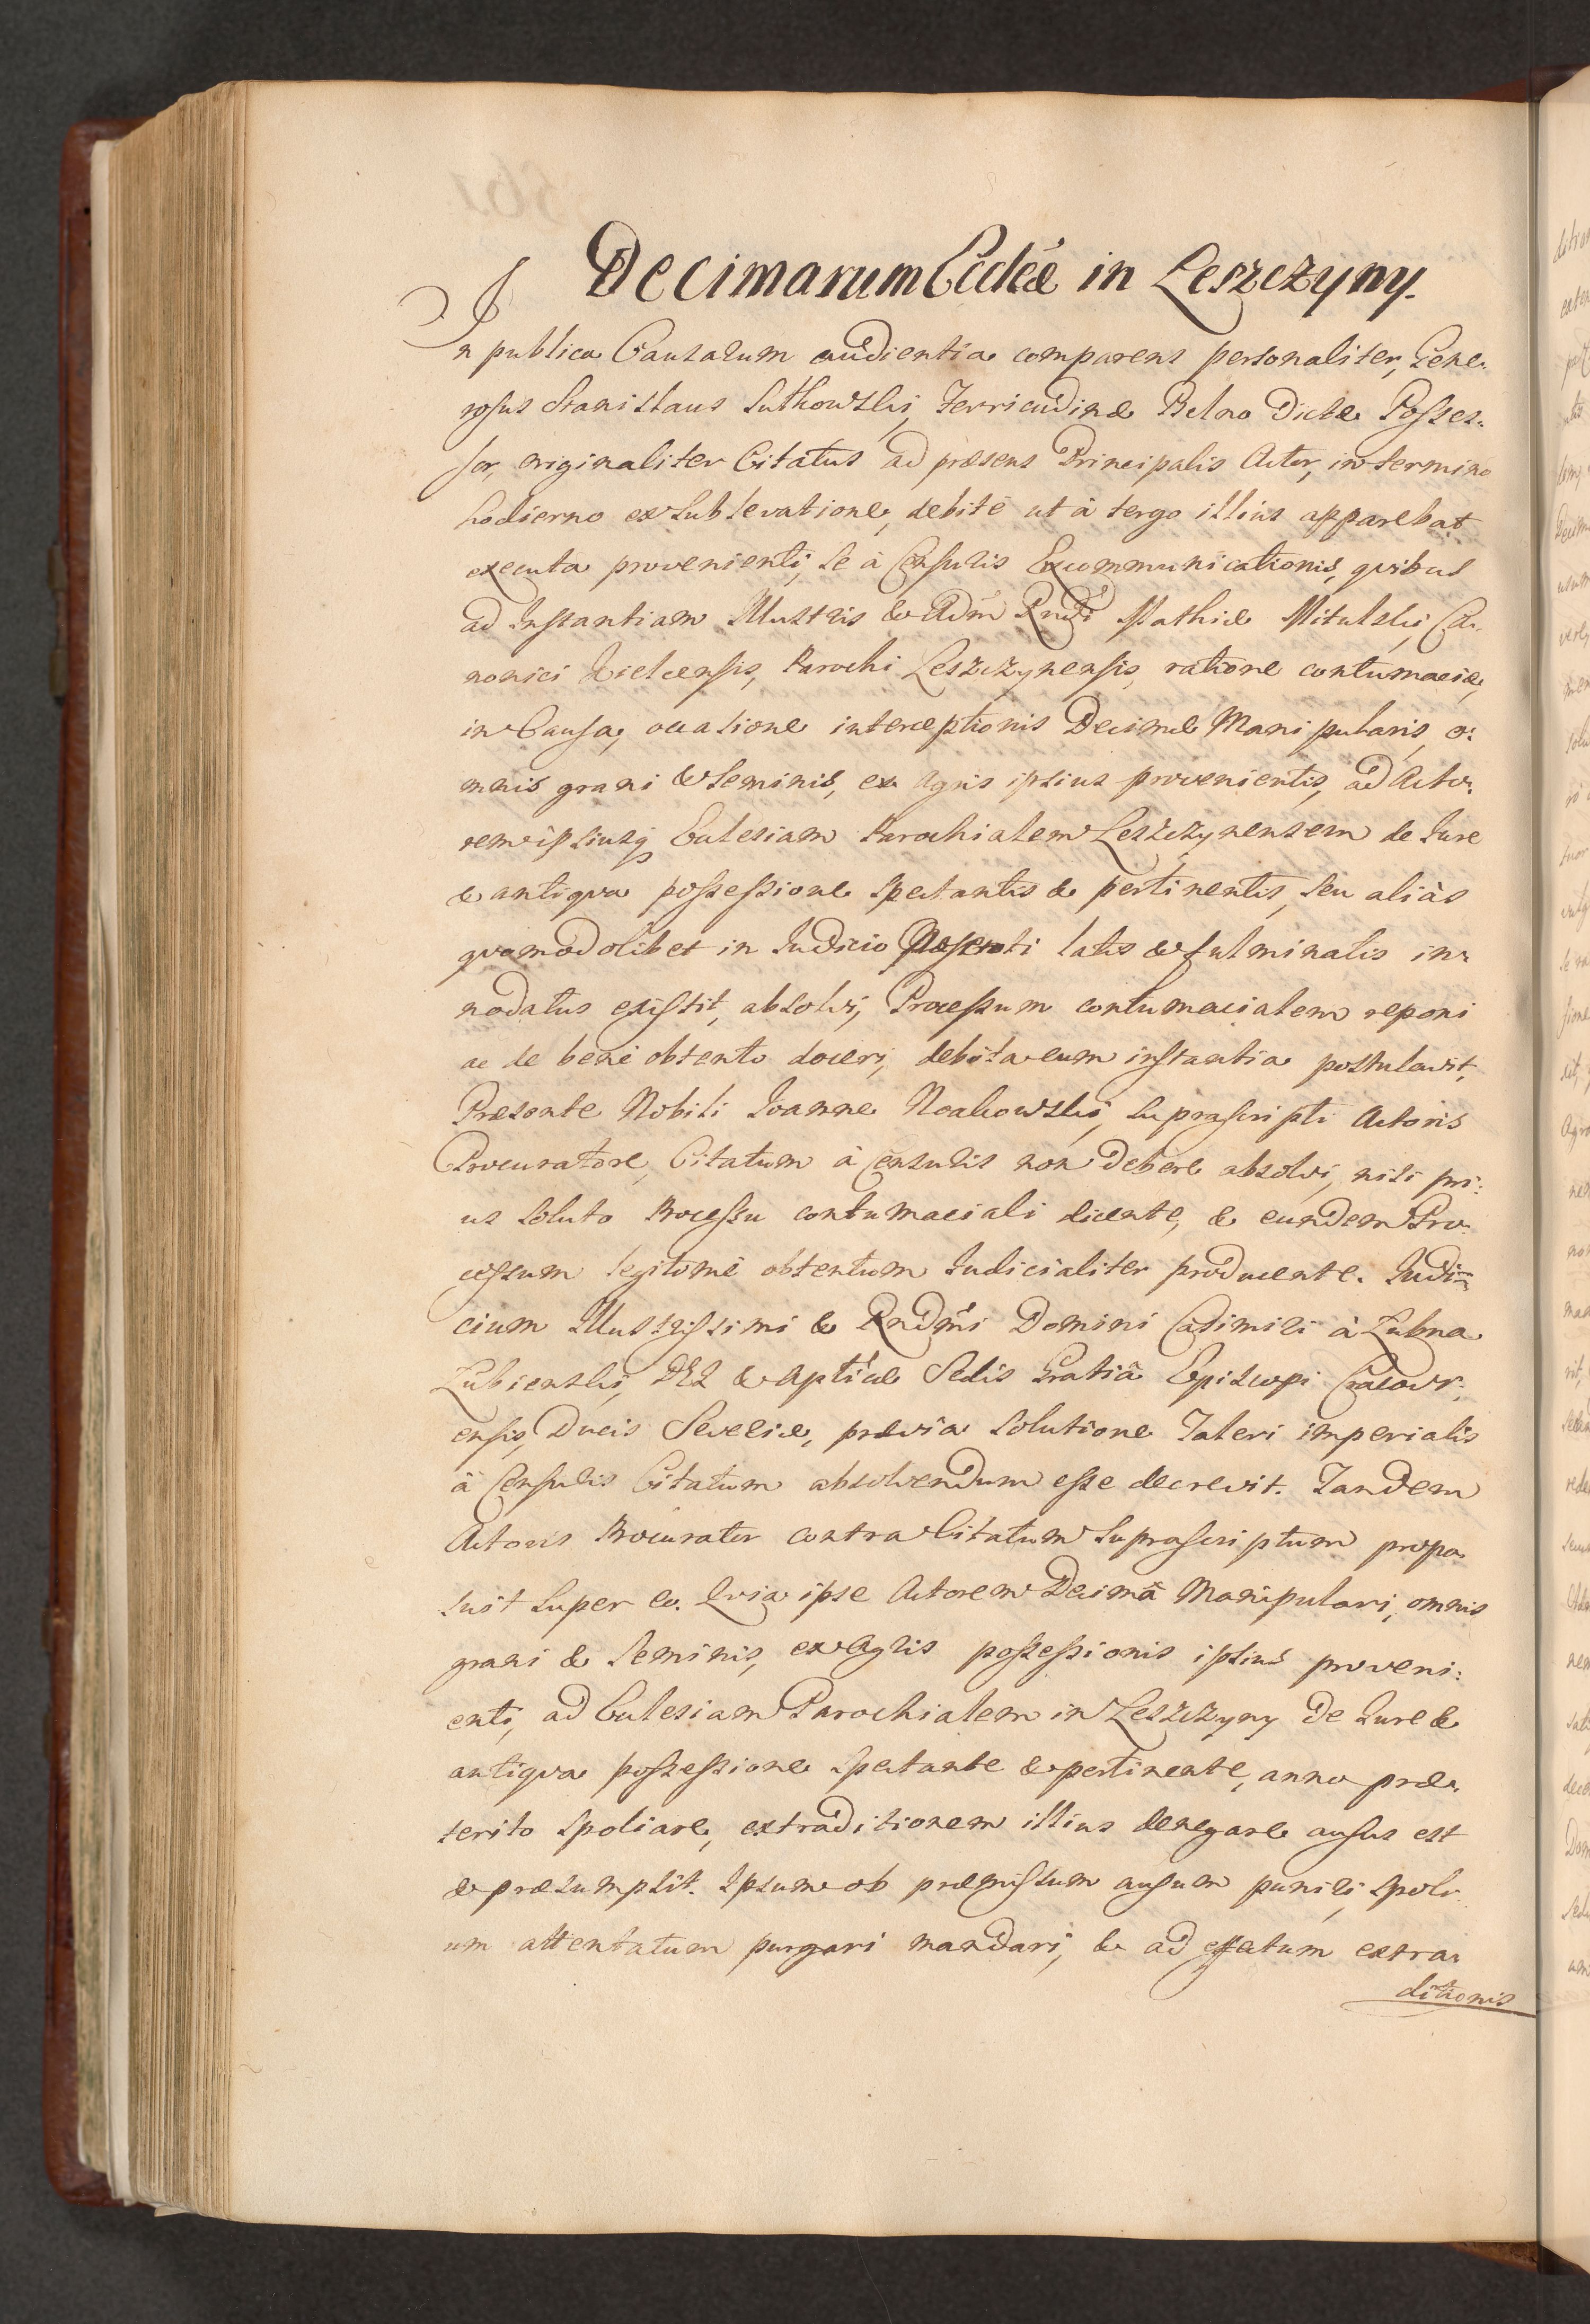 Decimarum Ecclẽæ in Leszczyny.
In publica Causarum audientia comparens personaliter, Gene-
rosus Stanislaus Sutkowski, Terricudinæ Belno Dictæ Posses-
sor, originaliter Citatus ad præsens Principalis Actor, in termino
hodierno ex sublevatione, debite ut à tergo illius apparebat
executa provenienti, se à Censuris Excommunicationis, quibus
ad Instantiam Illustris & Adm̃ Rndi Mathiæ Mitulski, Ca-
nonici Kielcensis, Parochi Leszczynensis, ratione contumaciæ,
in Causa, occasione interceptionis Decimæ Manipularis, o:
mnis grani & seminis, ex Agris ipsius provenientis, ad Acto-
rem ipsiusq Ecclesiam Parochialem Leszczynensem de Jure
& antiqva possessione spectantis & pertinentis, seu aliàs
qvomodolibet in Judicio Præsenti latis & fulminatis in-
nodatus existit, absolvi, Processum contumacialem reponi
ac de benè obtento doceri, debita cum instantia postulavit,
Præsente Nobili Joanne Noakowski, suprascripti Actoris
Procuratore, Citatum à Censuris non Debere absolvi, nisi pri:
us soluto Processu contumaciali dicente, & eundem Pro-
cessum legitimè obtentum Judicialiter producente. Judi=
cium Illustrissimi & Rndm̃i Domini Casimiri à Łubna
Łubienski, DEI & Apticæ Sedis Gratiâ Episcopi Cracovi-
ensis, Ducis Severiæ, prævia solutione Taleri imperialis
à Censuris Citatum absolvendum esse decrevit. Tandem
Actoris Procurator contra Citatum suprascriptum propo-
suit super eo. Qvia ipse Actorem Decimâ Manipulari, omnis
grani & seminis, ex Agris possessionis ipsius proveni:
enti, ad Ecclesiam Parochialem in Leszczyny De Jure &
antiqva possessione spectante & pertinente, anno præ-
terito spoliare, extraditionem illius denegare ausus est
& præsumpsit. Ipsum ob præmissum ausum puniri, spoli-
um attentatum purgari mandari, & ad effectum extra-
ditionis